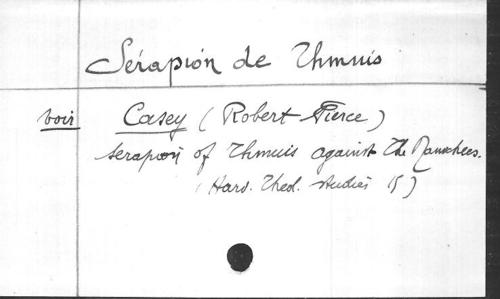 Sérapion de Thmuis
voir Casey (Robert Pierce)
Serapion of Thmuis against the Manichees.
(Harv. Theol. studies 15)